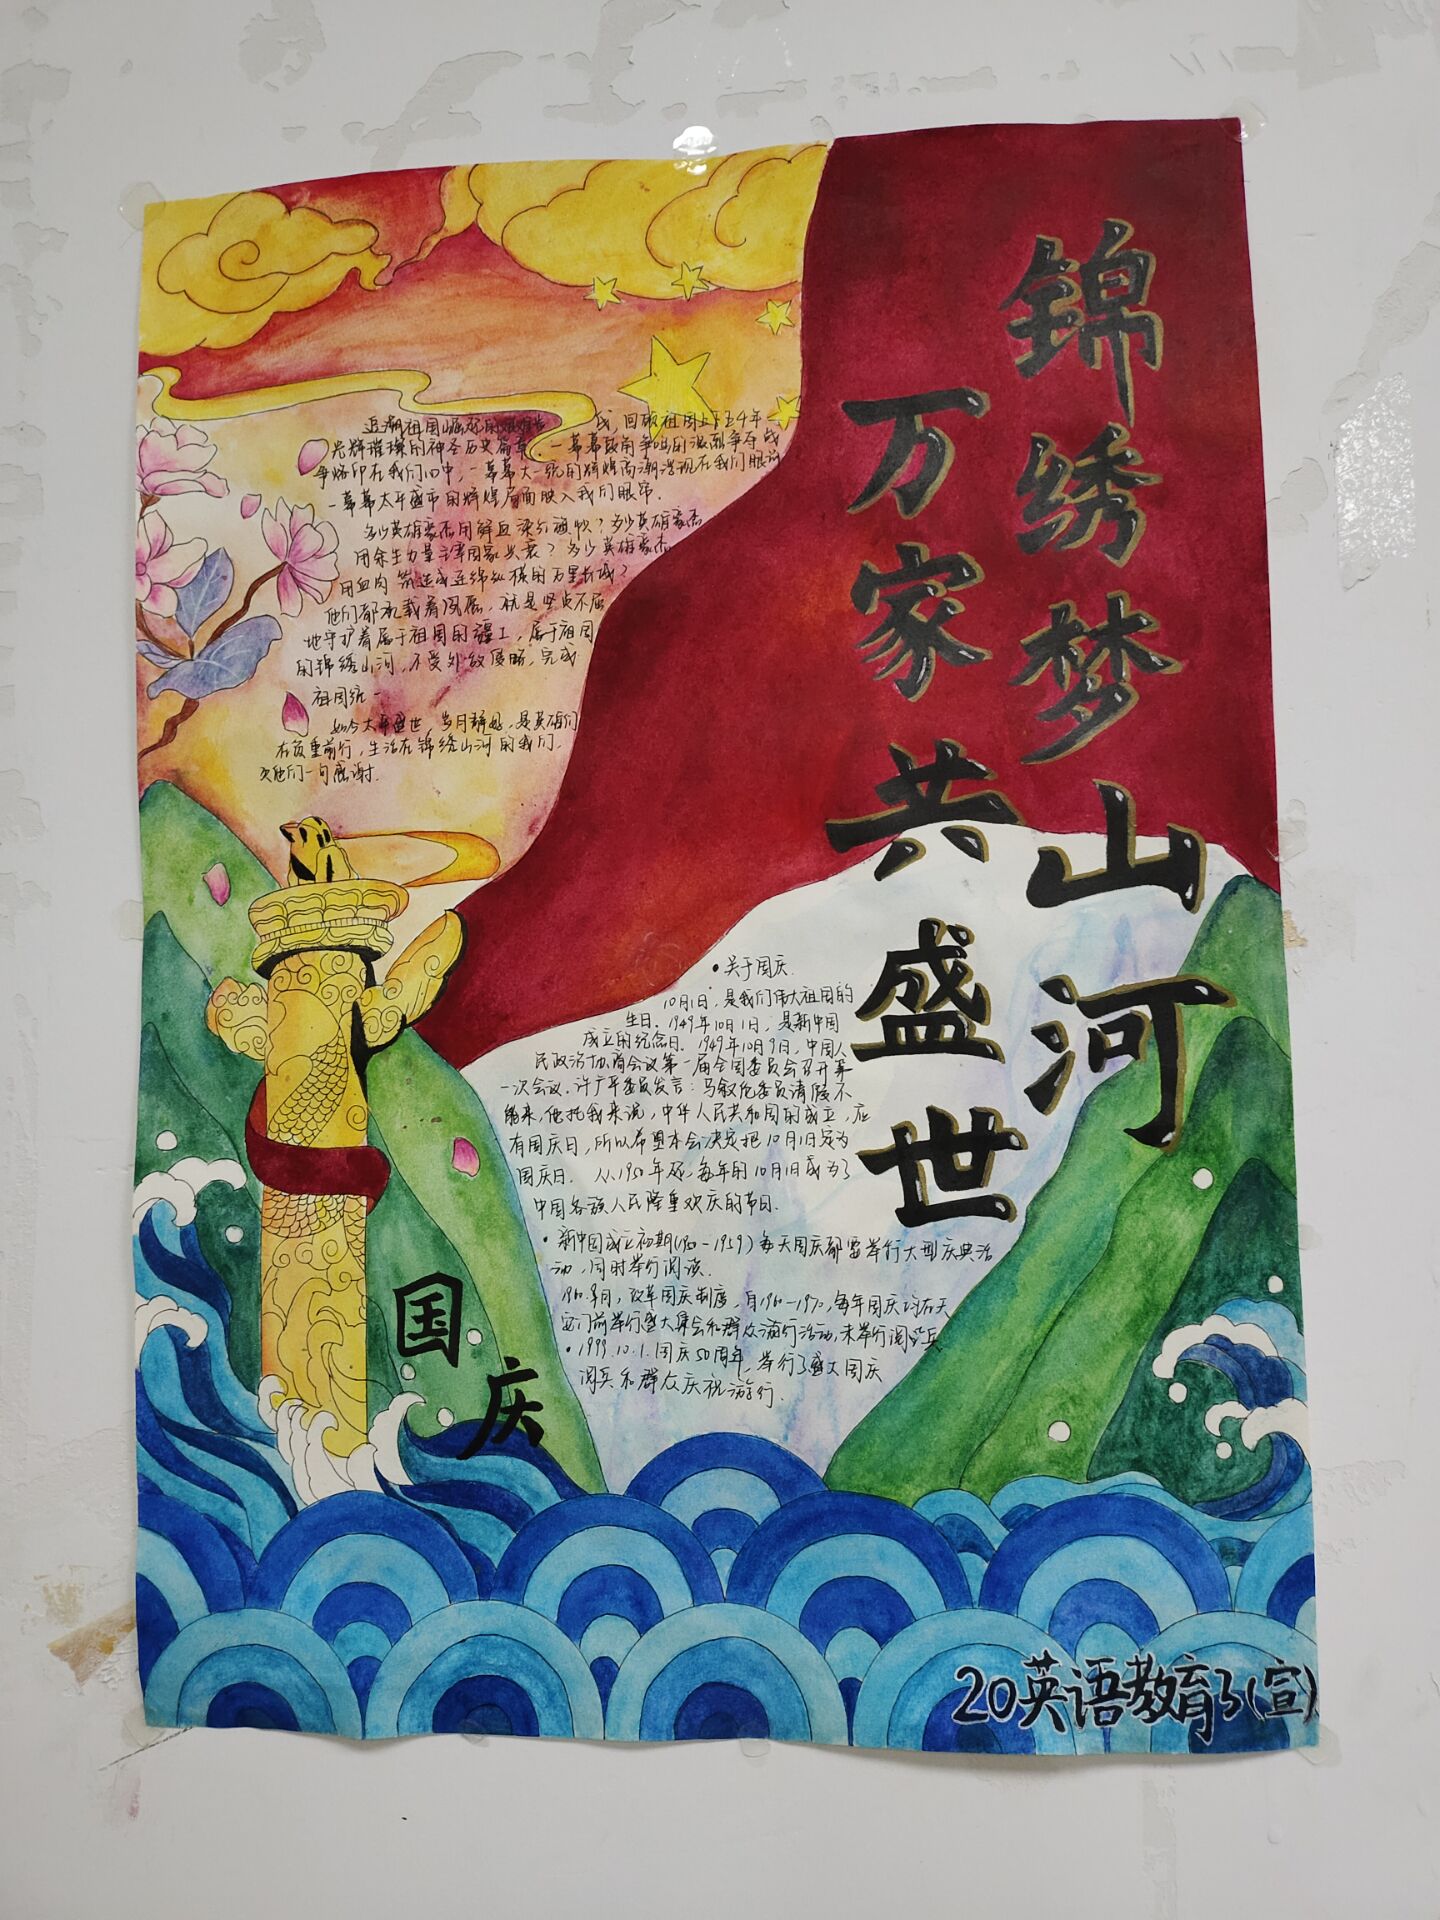 锦绣梦山河
万家共盛世
光辉璀璨的神圣历史篇章,一幕幕战角争鸣的激烈争夺战
争烙印在我们心中,一幕幕大一统的辉煌高潮浮现在我们眼前
一幕幕太平盛市的辉煌局面映入我们眼帘.
多少英雄豪杰用鲜血染红旗帜?多少英雄豪杰
用余生力量主宰国家兴衰?多少英雄豪杰
用血肉筑造成连绵纵横的万里长城?
他们都承载着夙愿,就是坚贞不屈
地守护着属于祖国的疆土,属于祖国
的锦绣山河,不受外敌侵略,完成
祖国统一
如今太平盛世 岁月静好,是英雄们
在负重前行,生活在锦绣山河的我们.
欠他们一句感谢.
•关于国庆.
10月1日,是我们伟大祖国的
生日.1949年10月1日,是新中国
成立的纪念日.1949年10月9日,中国人
民政治协商会议第一届全国委员会召开第
一次会议.许广平委员发言:马叙伦委员请假不
能来,他托我来说,中华人民共和国的成立,应
有国庆日,所以希望本会决定把10月1日定为
国庆日. 从1950年起,每年的10月1日成为了
中国各族人民隆重欢庆的节日.
•新中国成立初期(1950-1959)每天国庆都要举行大型庆典活
动,同时举行阅读.
改革国庆制度,自1960-1970,每年国庆均在天
安门前举行盛大集会和群众游行活动,未举行阅兵
•1999.10.1.国庆50周年,举行了盛大国庆
阅兵和群众庆祝游行.
国庆
20英语教育3(宣)